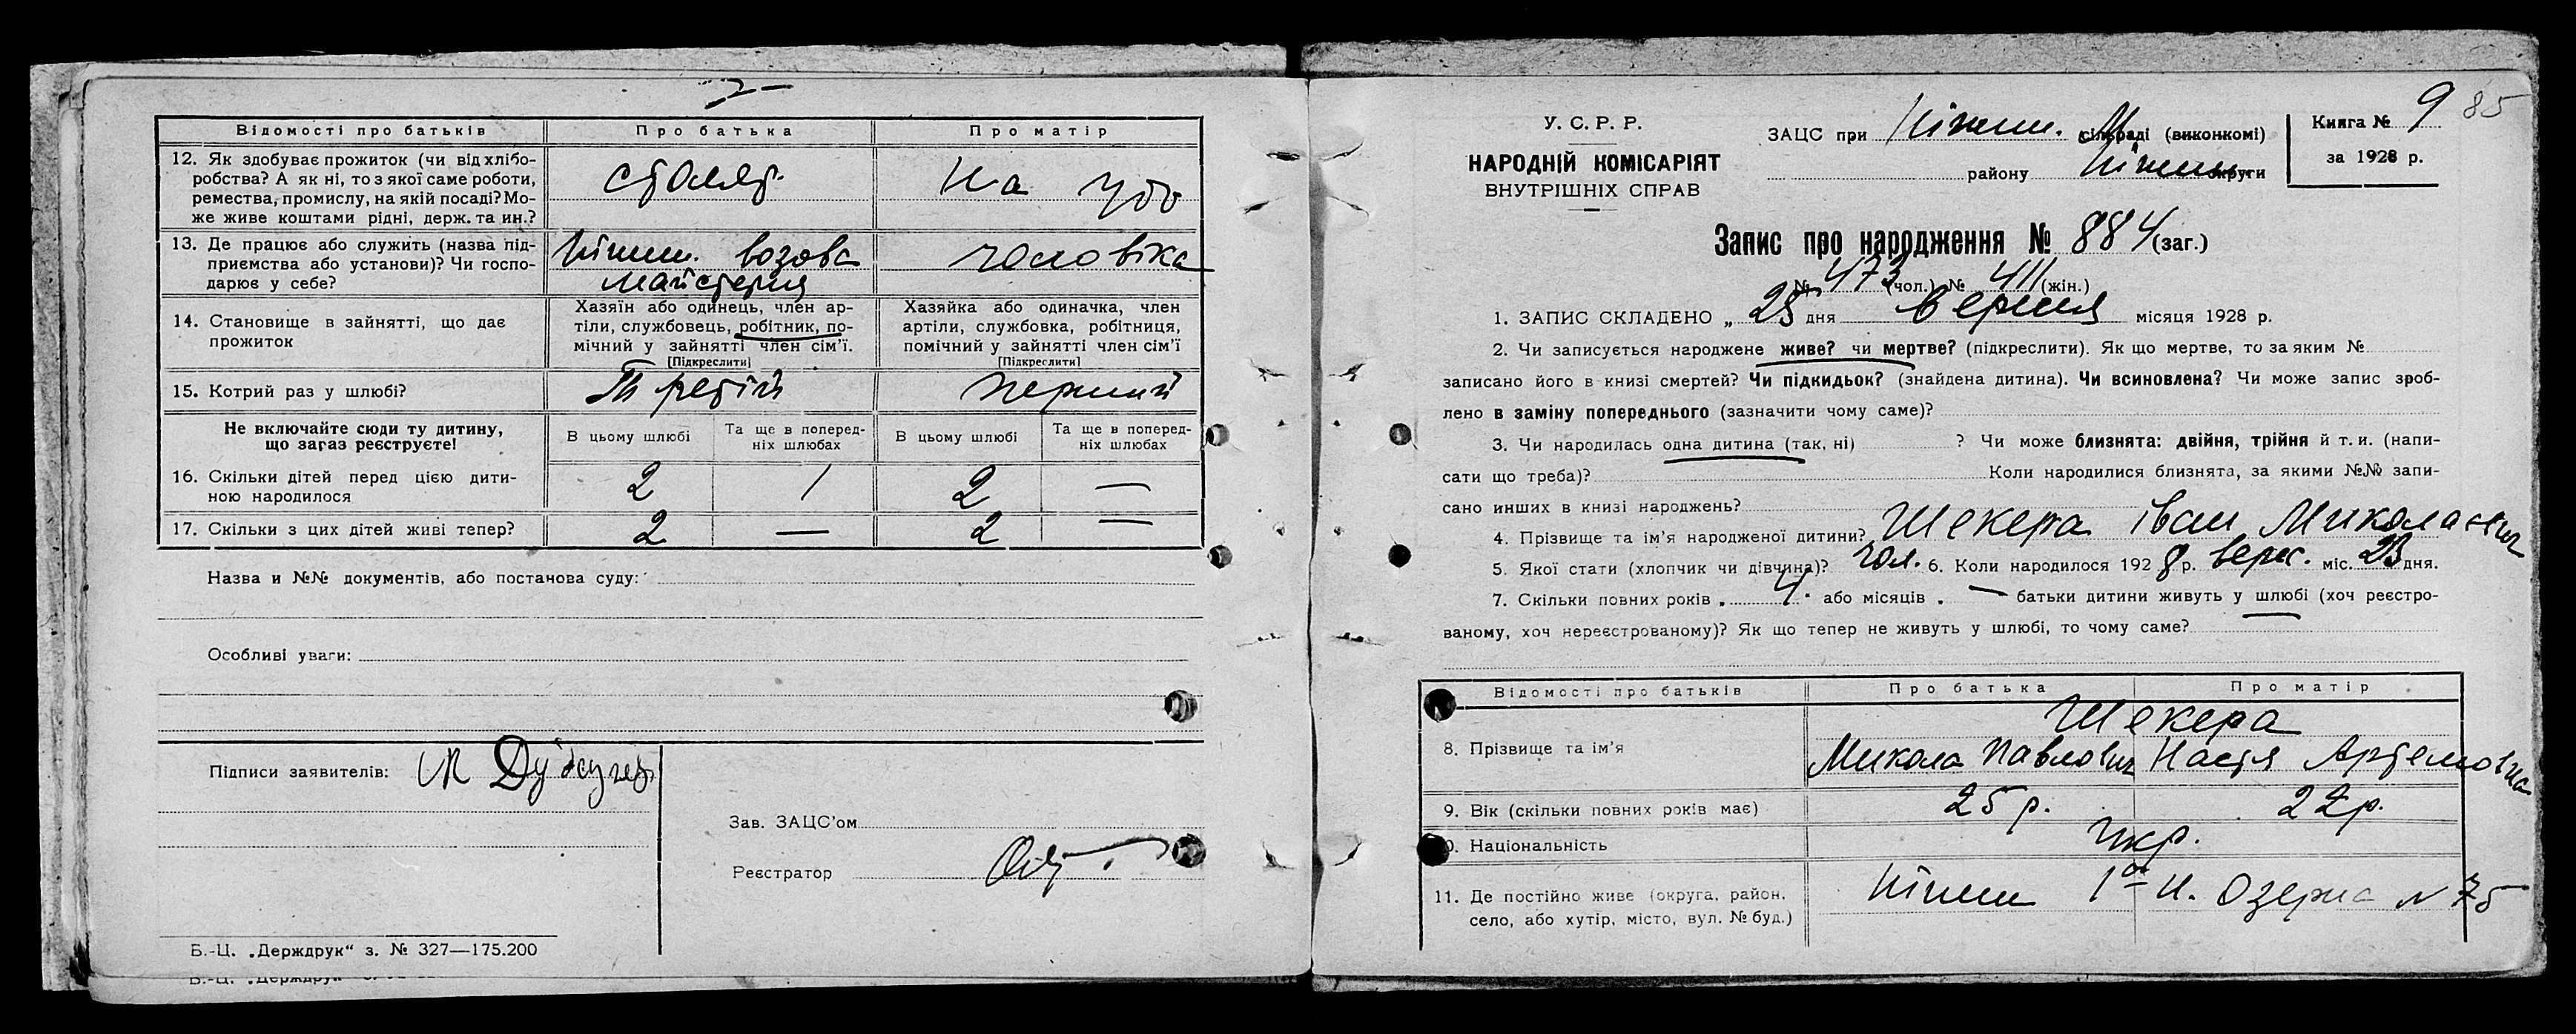 Відомості про батьків Про батька Про матір
12. Як здобуває прожиток (чи від хлібо-
робства? А як ні, то з якої саме роботи,
ремества, промислу, на якій посаді? Мо-
же живе коштами рідні, держ. та ин.?
столяр. на утр
13. Де працює або служить (назва під-
приємства або установи)? Чи госпо-
дарює у себе?
Ніжин. возова чоловіка
майстерня
14. Становище в зайнятті, що дає
прожиток
Хазяїн або одинець, член ар-
тіли, службовець, робітник, по-
мічний у зайнятті член сім'ї.
[Підкреслити]
Хазяйка або одиначка, член
артіли, службовка, робітниця,
помічний у зайнятті член сім'ї
[Підкреслити]
15. Котрий раз у шлюбі? Третій перший
Не включайте сюди ту дитину,
що зараз реєструєте!
В цьому шлюбі Та ще в поперед-
ніх шлюбах В цьому шлюбі Та ще в поперед-
ніх шлюбах
16. Скільки дітей перед цією дити-
ною народилося
2 1 2 —
17. Скільки з цих дітей живі тепер? 2 — 2 —
Назва и №№ документів, або постанова суду:
Особливі уваги:
Підписи заявителів:
Зав. ЗАЦС'ом
Реєстратор
Б.-Ц. „Держдрук“ з. № 327—175.200
Б.-Ц. „Держдрук“
У. С. Р. Р.
НАРОДНІЙ КОМІСАРІЯТ
ВНУТРІШНІХ СПРАВ
ЗАЦС при Ніжин. М сільраді (виконкомі)
району Ніжин округи
Книга № 9 85
за 1928 р.
Запис про народження № 884 (заг.)
№ 473 (чол.) № 411 (жін.)
1. ЗАПИС СКЛАДЕНО „ 25 дня вересня місяця 1928 р.
2. Чи записується народжене живе? чи мертве? (підкреслити). Як що мертве, то за яким №
записано його в книзі смертей? Чи підкидьок? (знайдена дитина). Чи всиновлена? Чи може запис зроб-
лено в заміну попереднього (зазначити чому саме)?
3. Чи народилась одна дитина (так, ні) ? Чи може близнята: двійня, трійня й т. и. (напи-
сати що треба)? Коли народилися близнята, за якими №№ запи-
сано инших в книзі народжень?
4. Прізвище та ім'я народженої дитини? Шекера Іван Миколаєвич
5. Якої стати (хлопчик чи дівчина)? чол. 6. Коли народилося 1928 р. верес. міс. 23 дня.
7. Скільки повних років 4. або місяців — батьки дитини живуть у шлюбі (хоч реєстро-
ваному, хоч нереєстрованому)? Як що тепер не живуть у шлюбі, то чому саме?
Відомості про батьків Про батька Про матір
8. Прізвище та ім'я
Шекера
Микола Павлович Настя Артемовна
9. Вік (скільки повних років має) 25 р. 22 р.
0. Національність Укр.
11. Де постійно живе (округа, район,
село, або хутір, місто, вул. № буд.)
Ніжин 1а Н. Озерна № 75